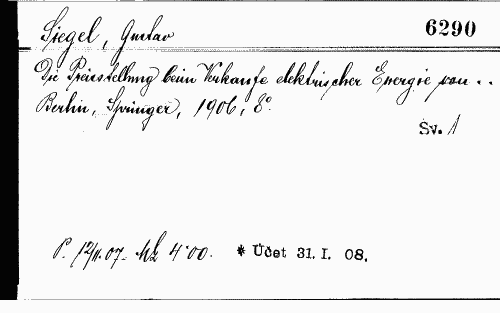 Siegel, Gustav 6290
Die Preisstellung beim Verkaufe elektrischer Energie von ..
Berlin, Springer, 1906, 8°.
Sv. 1
P. 12/11.07. Mk 4·00. * Účet 31. I. 08.